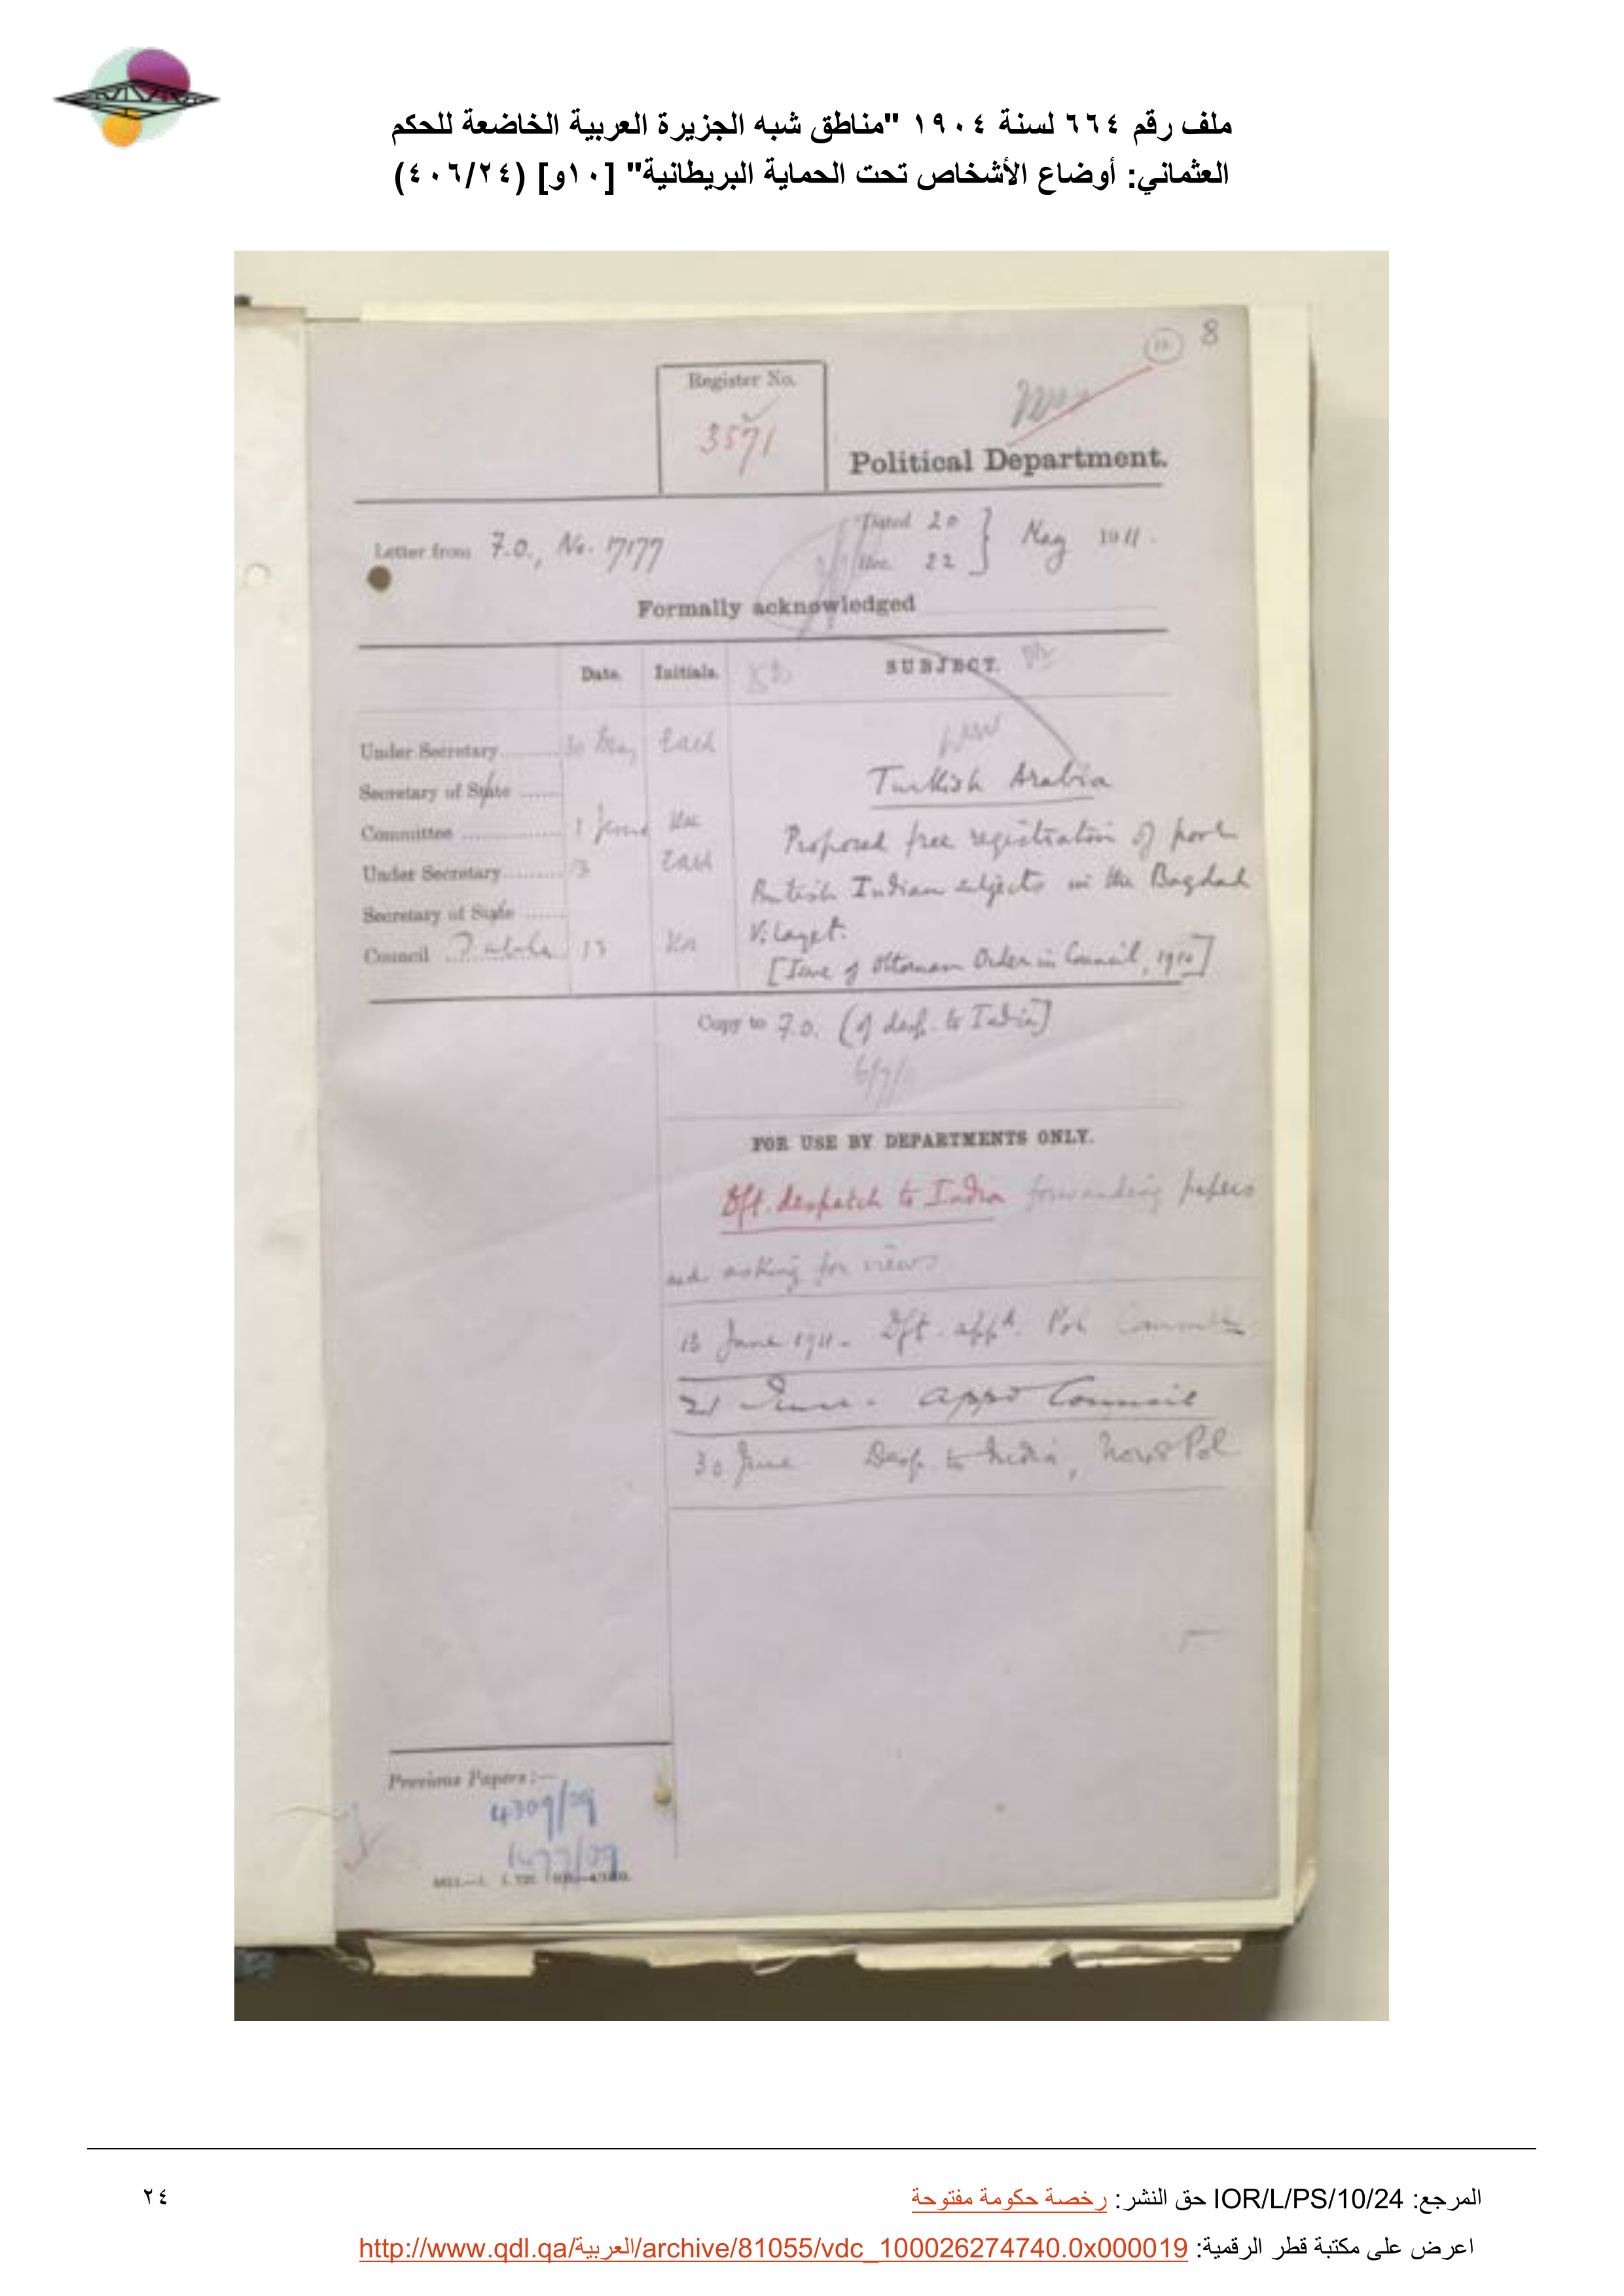 ملف رقم ٦٦٤ لسنة ١٩٠٤ "مناطق شبه الجزيرة العربية الخاضعة للحكم
العثماني: أوضاع الأشخاص تحت الحماية البريطانية" [١٠و] (٤٠٦/٢٤)
8
Register No.
3571
Political Department.
Letter from F.O., No. 17177
Dated 20
Rec. 22
May 1911.
Formally acknowledged
Date. Initials. SUBJECT.
Under Secretary
Secretary of State
Committee
Under Secretary
Secretary of State
Council 13
Turkish Arabia
Proposed free registration of poor
British Indian subjects in the Bagdad
Vilayet.
[Issue of Ottoman Order in Council, 1910]
Copy to F.O. (of desp. to India)
6/7/11
FOR USE BY DEPARTMENTS ONLY.
Dft. despatch to India forwarding papers
and asking for views
June 1911 - Dft. appd. Pol Committee
21 June - appd Council
30 June Desp. to India, Pol
Previous Papers:—
4309/09
المرجع: IOR/L/PS/10/24 حق النشر: رخصة حكومة مفتوحة
٢٤
اعرض على مكتبة قطر الرقمية: http://www.qdl.qa/العربية/archive/81055/vdc_100026274740.0x000019